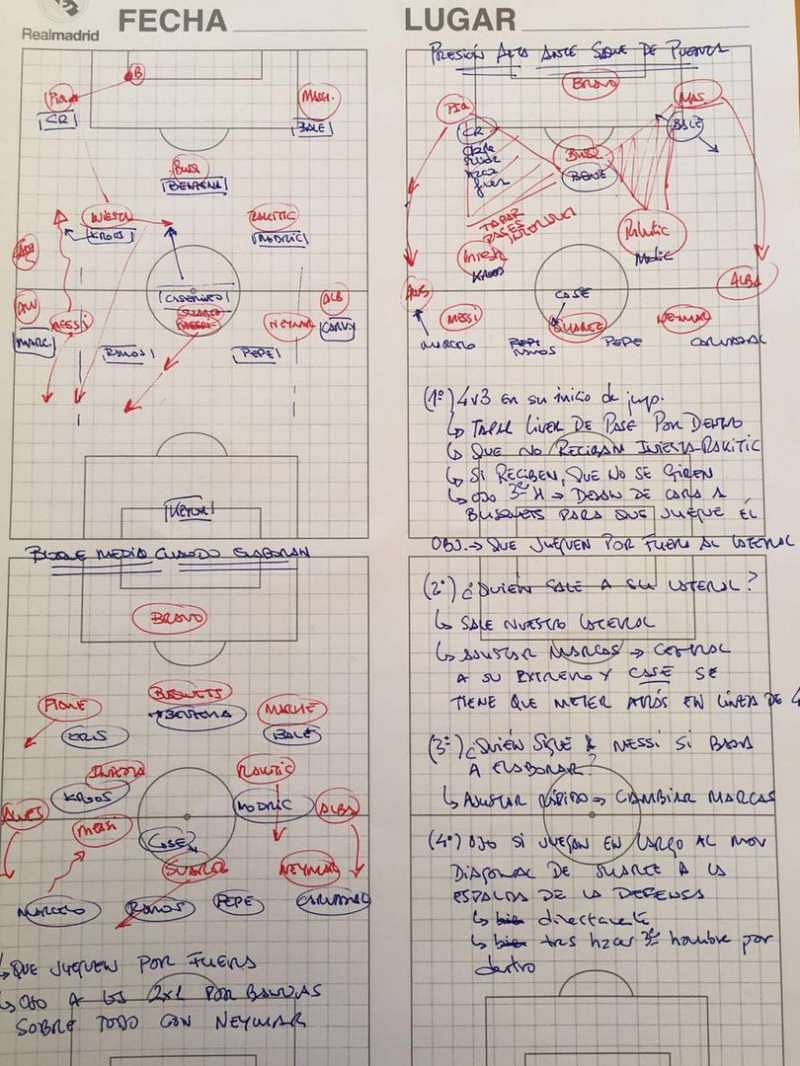 Realmadrid
FECHA
LUGAR
B
PIQ
CR
MASH.
BALE
BUSQ
BENZEMA
INIESTA
KROOS
RAKITIC
MODRIC
CASEMIRO
SUAREZ
MESSI
MARC
NEYMAR
ALB
CARV
RAMOS
PEPE
KEYLOR
BLOQUE MEDIO CUANDO ELABORAN
BRAVO
PIQUE
BUSQUETS
BENZEMA
MARCHE
CRIS
BALE
INIESTA
KROOS
RAKITIC
MODRIC
ALVES
MESSI
ALBA
CASE
SUAREZ
NEYMAR
MARCELO
RAMOS
PEPE
CARVAJAL
↳ QUE JUEGUEN POR FUERA
↳ OJO A LOS 2x1 POR BANDAS
SOBRE TODO CON NEYMAR
PRESIÓN ALTA ANTE SAQUE DE PUERTA
BRAVO
PIQ
MAS.
CR
BALE
BUSQ
BENZE
TAPAR
PASES
INTERIORES
INIESTA
KROOS
Rakitic
Modric
ALVES
ALBA
CASE
MESSI
SUAREZ
NEYMAR
MARCELO
RAMOS
PEPE
CARVAJAL
(1º) 4v3 en su inicio de juego.
↳ TAPAR LINEA DE PASE POR DENTRO
↳ QUE NO RECIBAN INIESTA-RAKITIC
↳ SI RECIBEN, QUE NO SE GIREN
↳ OJO 3er H → DEJAN DE CARA A
BUSQUETS PARA QUE JUEGUE ÉL
OBJ. → QUE JUEGUEN POR FUERA AL LATERAL
(2º) ¿QUIÉN SALE A SU LATERAL?
↳ SALE NUESTRO LATERAL
↳ AJUSTAR MARCAS → CENTRAL
A SU EXTREMO Y CASE SE
TIENE QUE METER ATRÁS EN LÍNEA DE 4
(3º) ¿QUIÉN SIGUE A MESSI SI BAJA
A ELABORAR?
↳ AJUSTAR RÁPIDO → CAMBIAR MARCAS
(4º) OJO SI JUEGAN EN LARGO AL MOV
DIAGONAL DE SUAREZ A LA
ESPALDA DE LA DEFENSA
↳ bien directamente
↳ bien tras hacer 3er hombre por
dentro